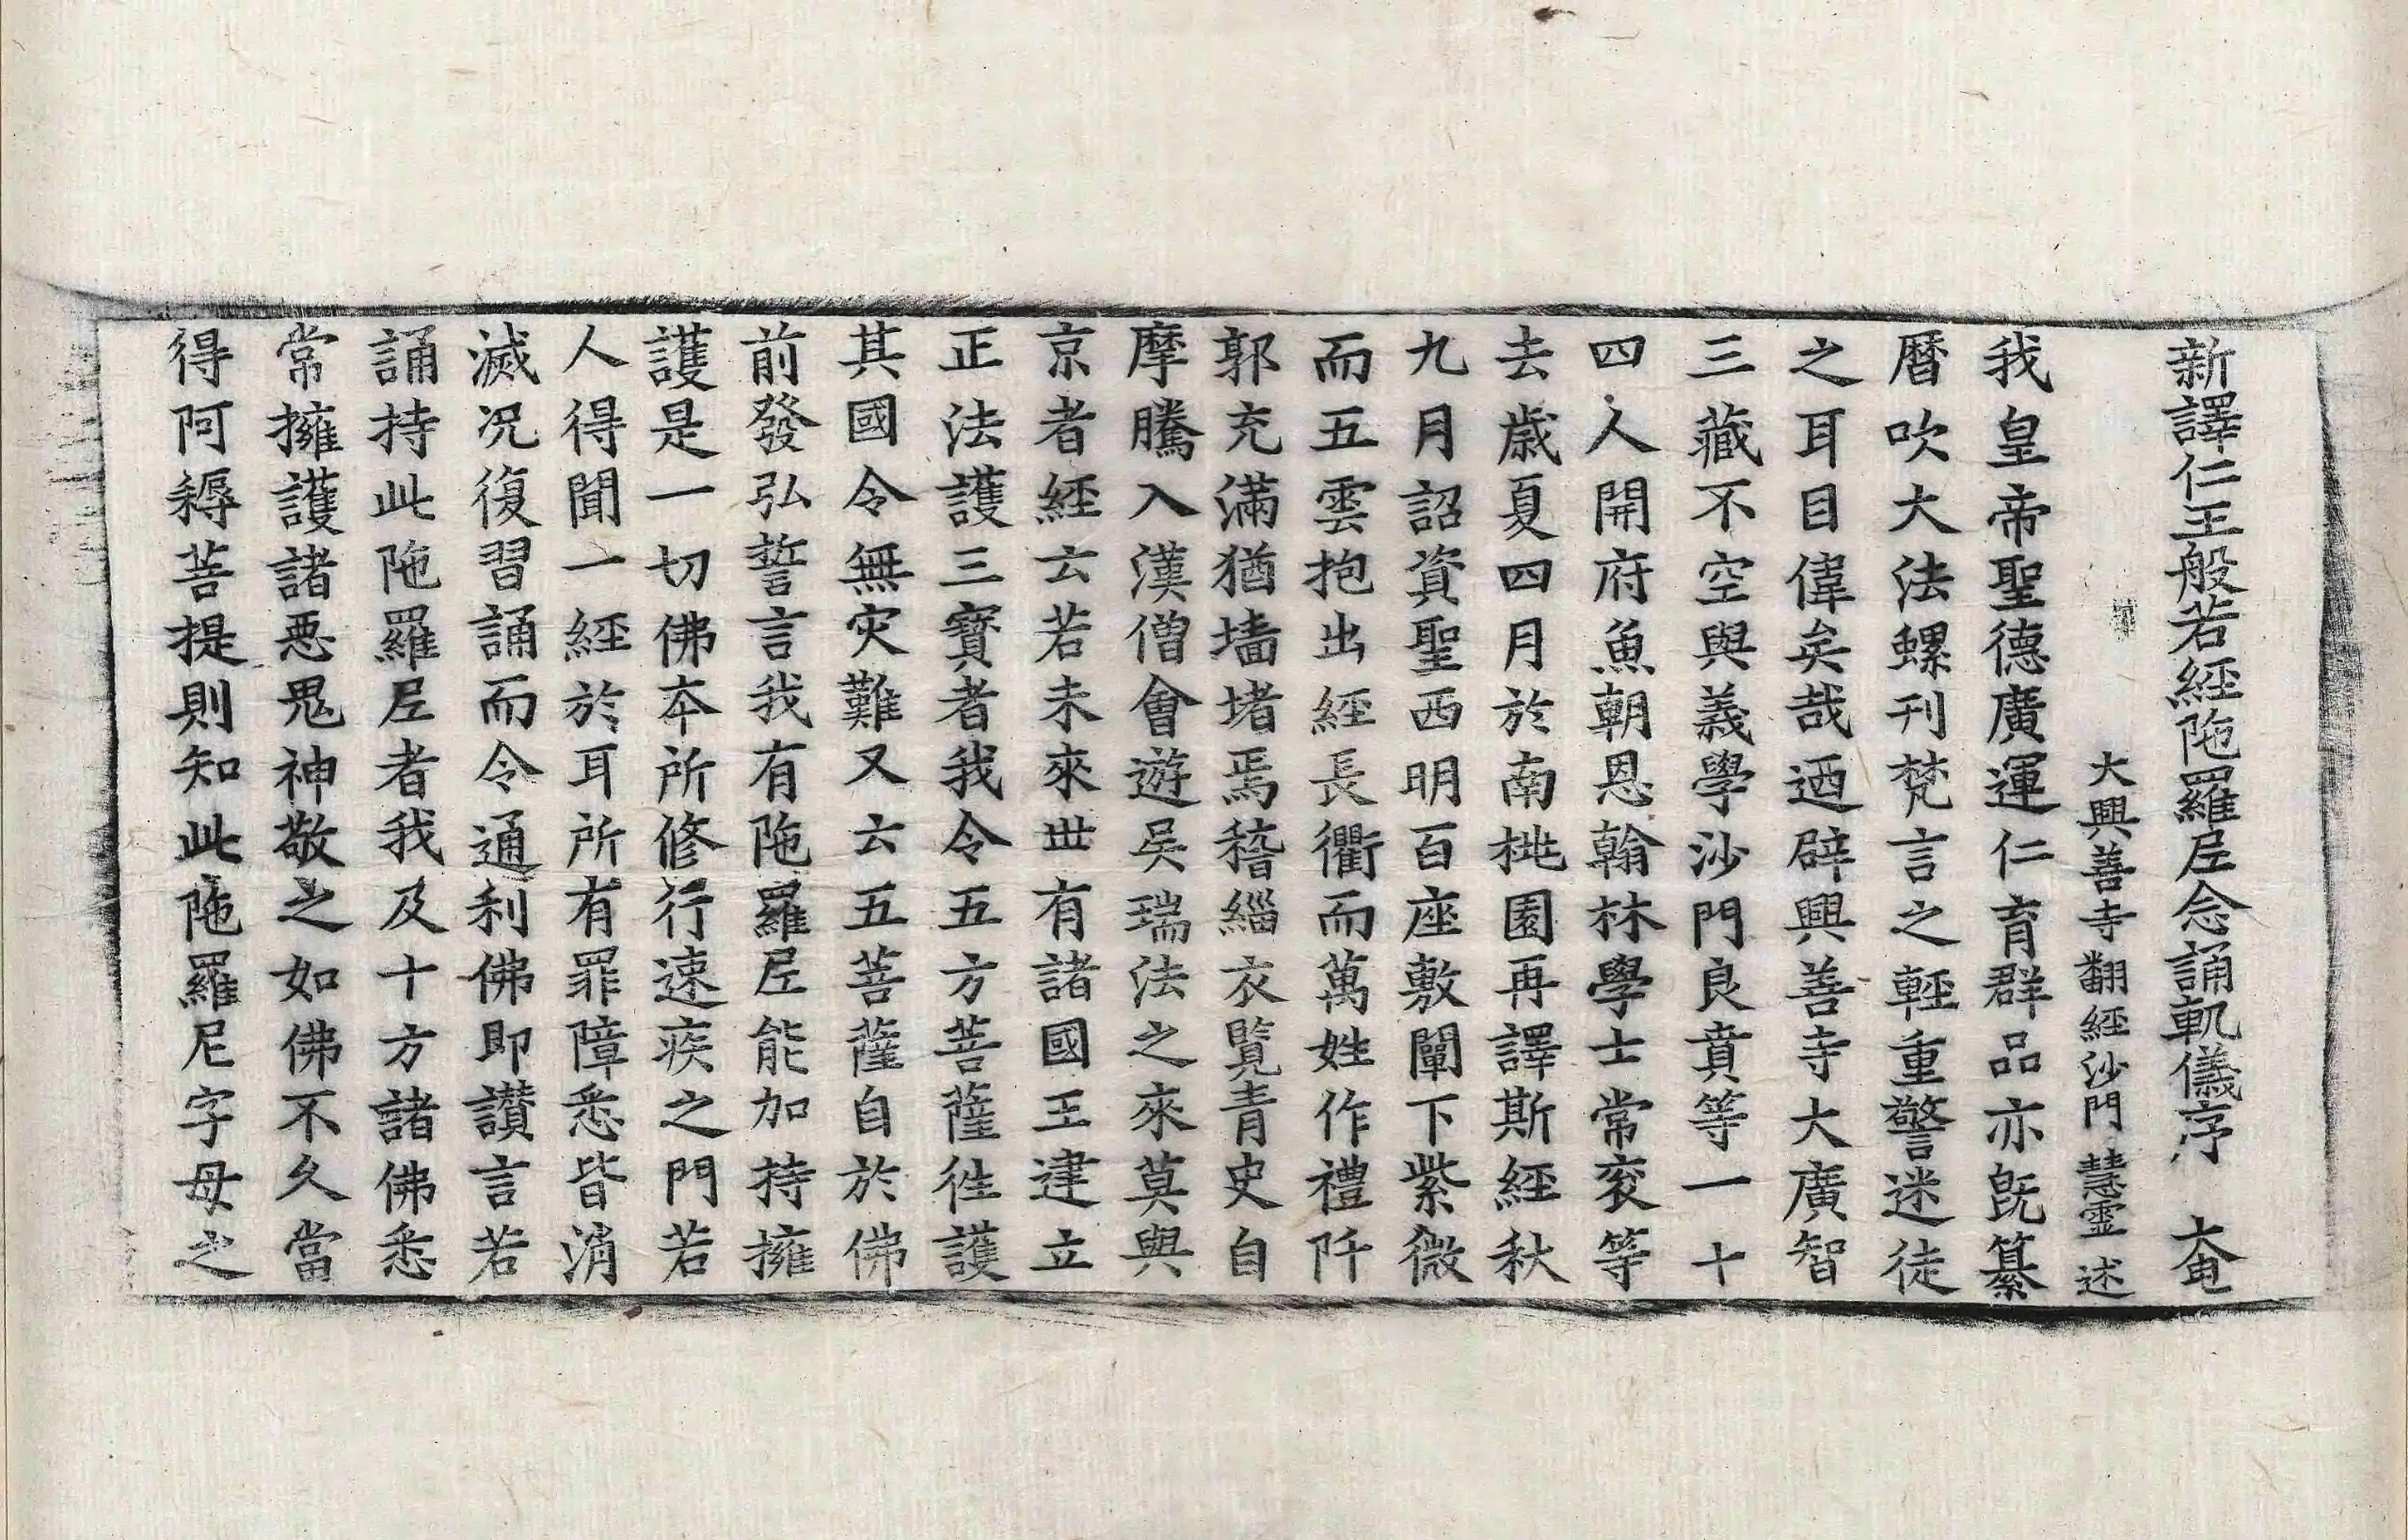 新譯仁王般若經陁羅尼念誦軌儀序 奄
大興善寺翻經沙門 慧靈 述
我皇帝聖德廣運仁育群品亦旣纂
曆吹大法螺刊梵言之輕重警迷徒
之耳目偉矣哉迺辟興善寺大廣智
三藏不空與義學沙門良賁等一十
四人開府魚朝恩翰林學士常衮等
去歲夏四月於南桃園再譯斯經秋
九月詔資聖西明百座敷闡下紫微
而五雲抱出經長衢而萬姓作禮阡
郭充滿猶墻堵焉稽緇衣覽青史自
摩騰入漢僧會遊吳瑞法之來莫與
京者經云若未來世有諸國王建立
正法護三寶者我令五方菩薩徃護
其國令無灾難又云五菩薩自於佛
前發弘誓言我有陁羅尼能加持擁
護是一切佛夲所修行速疾之門若
人得聞一經於耳所有罪障悉皆消
滅况復習誦而令通利佛即讃言若
誦持此陁羅尼者我及十方諸佛悉
常擁護諸惡鬼神敬之如佛不久當
得阿耨菩提則知此陁羅尼字母之